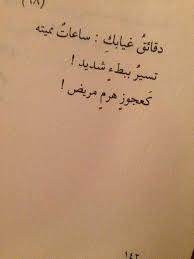 (٦٨)
دقائقُ غيابكِ : ساعاتٌ مميته
تسيرُ ببطءٍ شديد !
كَعجوزٍ هرمٍ مريض !
١٤٢